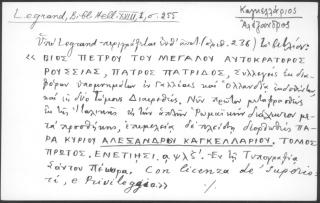 Legrand, Bibl. Hell. XVIII, 1, σ. 255
Καγκελλάριος
Ἀλέξανδρος
Ὑπὸ Legrand περιγράφεται ὑπ' ἀριθ. 236 τὸ βιβλίον:
« ΒΙΟΣ ΠΕΤΡΟΥ ΤΟΥ ΜΕΓΑΛΟΥ ΑΥΤΟΚΡΑΤΟΡΟΣ
ΡΟΥΣΣΙΑΣ, ΠΑΤΡΟΣ ΠΑΤΡΙΔΟΣ, Συλλεγεὶς ἐκ δια-
φόρων ὑπομνημάτων ἐν Γαλλίαις καὶ Ὁλλανδίᾳ ἐκδοθέντων,
καὶ εἰς δύο Τόμους Διαιρεθείς. Νῦν πρῶτον μεταφρασθεὶς
ἐκ τῆς Ἰταλικῆς εἰς τὴν ἁπλῆν Ῥωμαϊκὴν διάλεκτον με-
τὰ προσθήκης, ἐπιμελείᾳ δὲ πλείστῃ διορθωθεὶς ΠΑ-
ΡΑ ΚΥΡΙΟΥ ΑΛΕΞΑΝΔΡΟΥ ΚΑΓΚΕΛΛΑΡΙΟΥ. ΤΟΜΟΣ
ΠΡΩΤΟΣ. ΕΝΕΤΙΗΣΙ. αψλζ΄. Ἐν τῇ Τυπογραφίᾳ
Con licenza de' Superio-
ri, e Privileggio.»